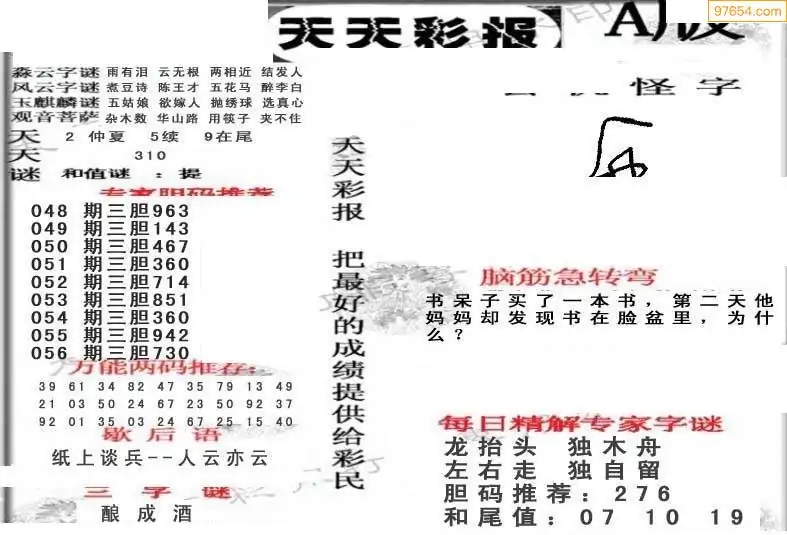 97654.com
天天彩报 A版
森云字谜 雨有泪 云无根 两相近 结发人
风云字谜 煮豆诗 陈王才 五花马 醉李白
玉麒麟谜 五姑娘 欲嫁人 抛绣球 选真心
观音菩萨 杂木数 华山路 用筷子 夹不住
天 2 仲夏 5续 9在尾
天 310
谜 和值谜 : 提
专家胆码推荐
048 期三胆963
049 期三胆143
050 期三胆467
051 期三胆360
052 期三胆714
053 期三胆851
054 期三胆360
055 期三胆942
056 期三胆730
万能两码推荐:
39 61 34 82 47 35 79 13 49
21 03 50 24 67 23 50 92 37
92 01 35 03 24 67 25 15 40
歇后语
纸上谈兵--人云亦云
三字谜
酿成酒
天天彩报 把最好的成绩提供给彩民
怪字
脑筋急转弯
书呆子买了一本书，第二天他
妈妈却发现书在脸盆里，为什
么？
每日精解专家字谜
龙抬头 独木舟
左右走 独自留
胆码推荐: 276
和尾值: 07 10 19